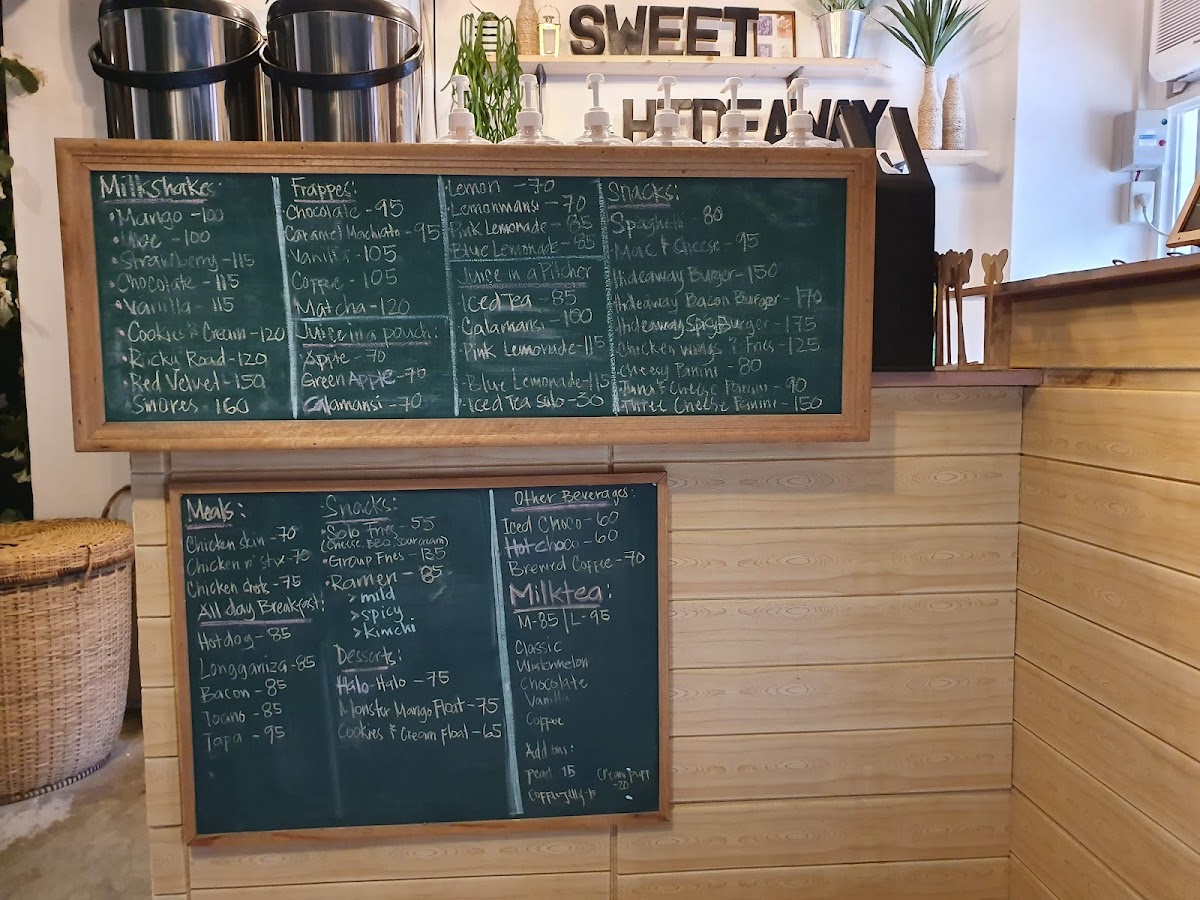 SWEET
HIDEAWAY
Milkshakes
•Mango -100
-100
•Strawberry -115
•Chocolate -115
•Vanilla -115
•Cookies & Cream -120
•Rocky Road -120
•Red Velvet -150
•Smores -160
Frappes:
Chocolate -95
Caramel Machiato -95
Vanilla -105
Coffee -105
Matcha -120
Juice in a pouch:
Apple -70
Green Apple -70
Calamansi -70
Lemon -70
Lemonmansi -70
Pink Lemonade -85
Blue Lemonade -85
Juice in a Pitcher
Iced Tea -85
Calamansi -100
Pink Lemonade -115
•Blue Lemonade -115
•Iced Tea Solo -30
Snacks:
Spaghetti - 80
Mac & Cheese -95
Hideaway Burger -150
Hideaway Bacon Burger - 170
Hideaway Spicy Burger - 175
Chicken wings & Fries -125
Cheesy Panini - 80
•Tuna & Cheese Panini - 90
•Three Cheese Panini -150
Meals:
Chicken skin -70
Chicken n' stx -70
Chicken -75
All day Breakfast:
Hotdog - 85
Longganiza -85
Bacon - 85
Tocino -85
Tapa -95
Snacks:
•Solo Fries -55
(cheese, BBQ, sourcream)
•Group Fries -135
•Ramen - 85
>mild
>spicy
>kimchi
Desserts:
Halo-Halo -75
Monster Mango Float -75
Cookies & Cream Float -65
Other Beverages:
Iced Choco -60
Hot choco -60
Brewed Coffee -70
Milktea:
M-85 | L-95
Classic
Wintermelon
Chocolate
Vanilla
Coffee
Add ons:
pearl 15
cream puff -20
Coffee Jelly -15